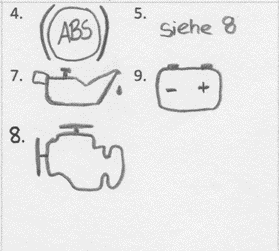 4. ABS
5. siehe 8
7.
9. - +
8.